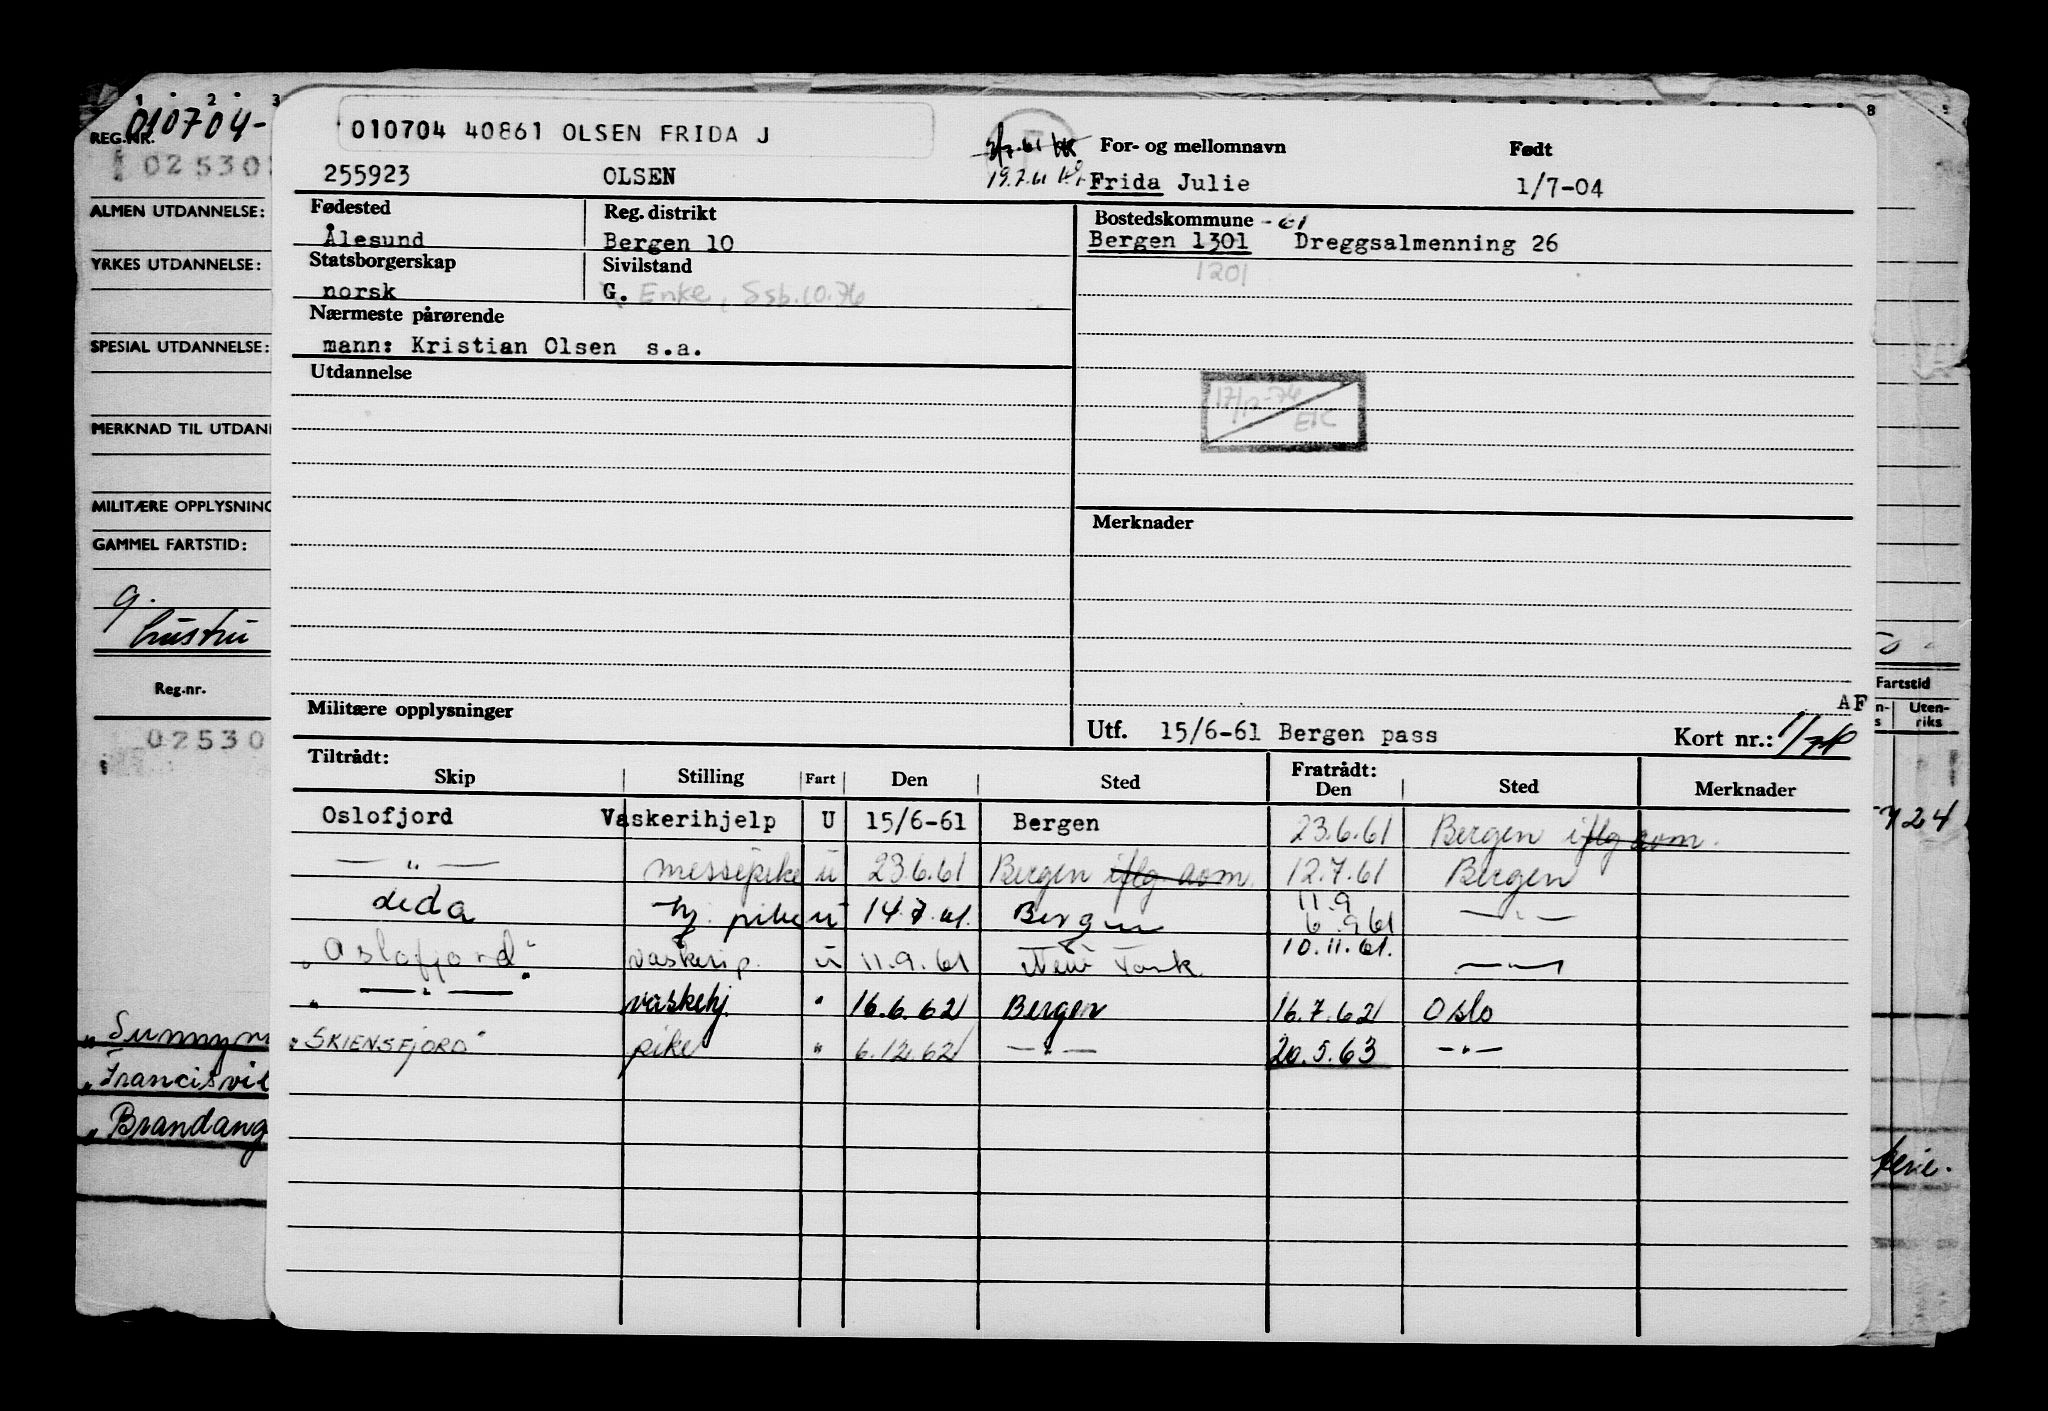 010704-
REG.NR.
02530
ALMEN UTDANNELSE:
YRKES UTDANNELSE:
SPESIAL UTDANNELSE:
MERKNAD TIL UTDAN
MILITÆRE OPPLYSNING
GAMMEL FARTSTID:
g.
hustru
Reg.nr.
02530
"Sunnym
"Francisvil
"Brandang
010704 40861 OLSEN FRIDA J
255923 OLSEN
19.7.61
For- og mellomnavn Født
Frida Julie 1/7-04
Fødested Reg. distrikt Bostedskommune -61
Ålesund Bergen 10 Bergen 1301 Dreggsalmenning 26
1201
Statsborgerskap Sivilstand
norsk G. Enke, Ssb.10.76
Nærmeste pårørende
mann: Kristian Olsen s.a.
Utdannelse
17/12-76
EK
Merknader
Militære opplysninger
AF
Utf. 15/6-61 Bergen pass Kort nr.: 1/
Tiltrådt: Fratrådt:
Skip Stilling Fart Den Sted Den Sted Merknader
Oslofjord Vaskerihjelp U 15/6-61 Bergen 23.6.61 Bergen iflg aom.
— " — messepike u 23.6.61 Bergen iflg. aom. 12.7.61 Bergen
Leda hj. pike u 14.7.61. Bergen 11.9 6.9.61 — " —
"Oslofjord" vaskerip. u 11.9.61 New York 10.11.61. — " —
" — " — " vaskehj. " 16.6.62 Bergen 16.7.62 Oslo
"SKIENSFJORD" pike " 6.12.62 — " — 20.5.63 — " —
Fartstid
Uten-
riks
7 24
ferie.